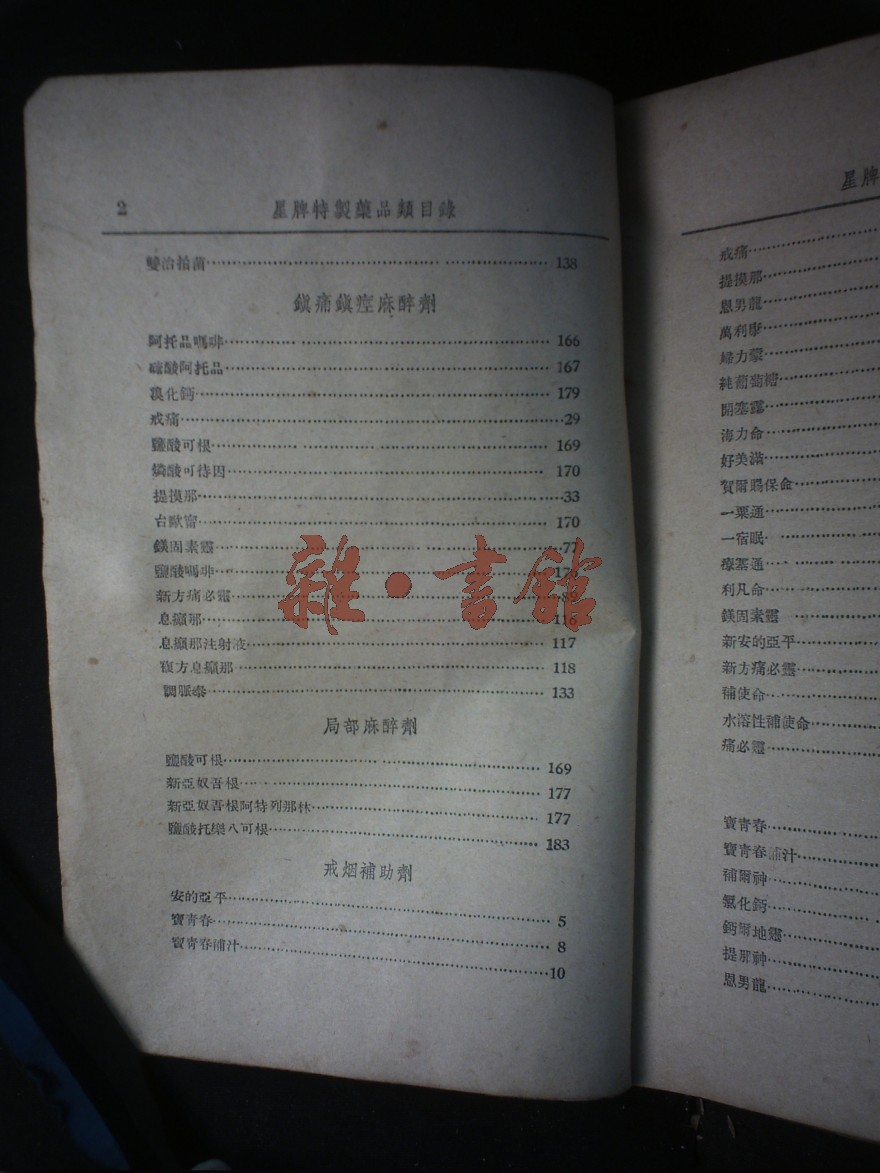 2
星牌特製藥品類目錄
雙治拍菌 138
鎮痛鎮痙麻醉劑
阿托品嗎啡 166
硫酸阿托品 167
溴化鈣 179
戒痛 29
鹽酸可根 169
燐酸可待因 170
提摸那 33
台歐甯 170
鎂固素靈 77
鹽酸嗎啡
新方痛必靈 89
息癲那 116
息癲那注射液 117
複方息癲那 118
調脈泰 133
局部麻醉劑
鹽酸可根 169
新亞奴吾根 177
新亞奴吾根阿特列那林 177
鹽酸托樂八可根 183
戒烟補助劑
安的亞平 5
寶青春 8
寶青春補汁 10
雜·書館
星牌
戒痛
提摸那
恩男龍
萬利康
婦力蒙
純葡萄糖
開塞露
海力命
好美滿
賀爾賜保命
一粟通
一宿眠
療塞通
利凡命
鎂固素靈
新安的亞平
新方痛必靈
補使命
水溶性補使命
痛必靈
寶青春
寶青春補汁
補爾神
氯化鈣
鈣爾地靈
提那神
恩男龍